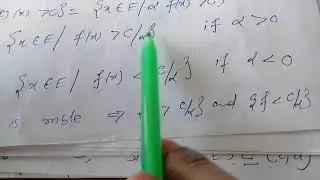 (x) > C} = {x ∈ E / α f(x) >
{x ∈ E / f(x) > C/α} if α > 0
{x ∈ E / f(x) < C/α} if α < 0
is mble ⇒ > C/α} and {f < C/α}